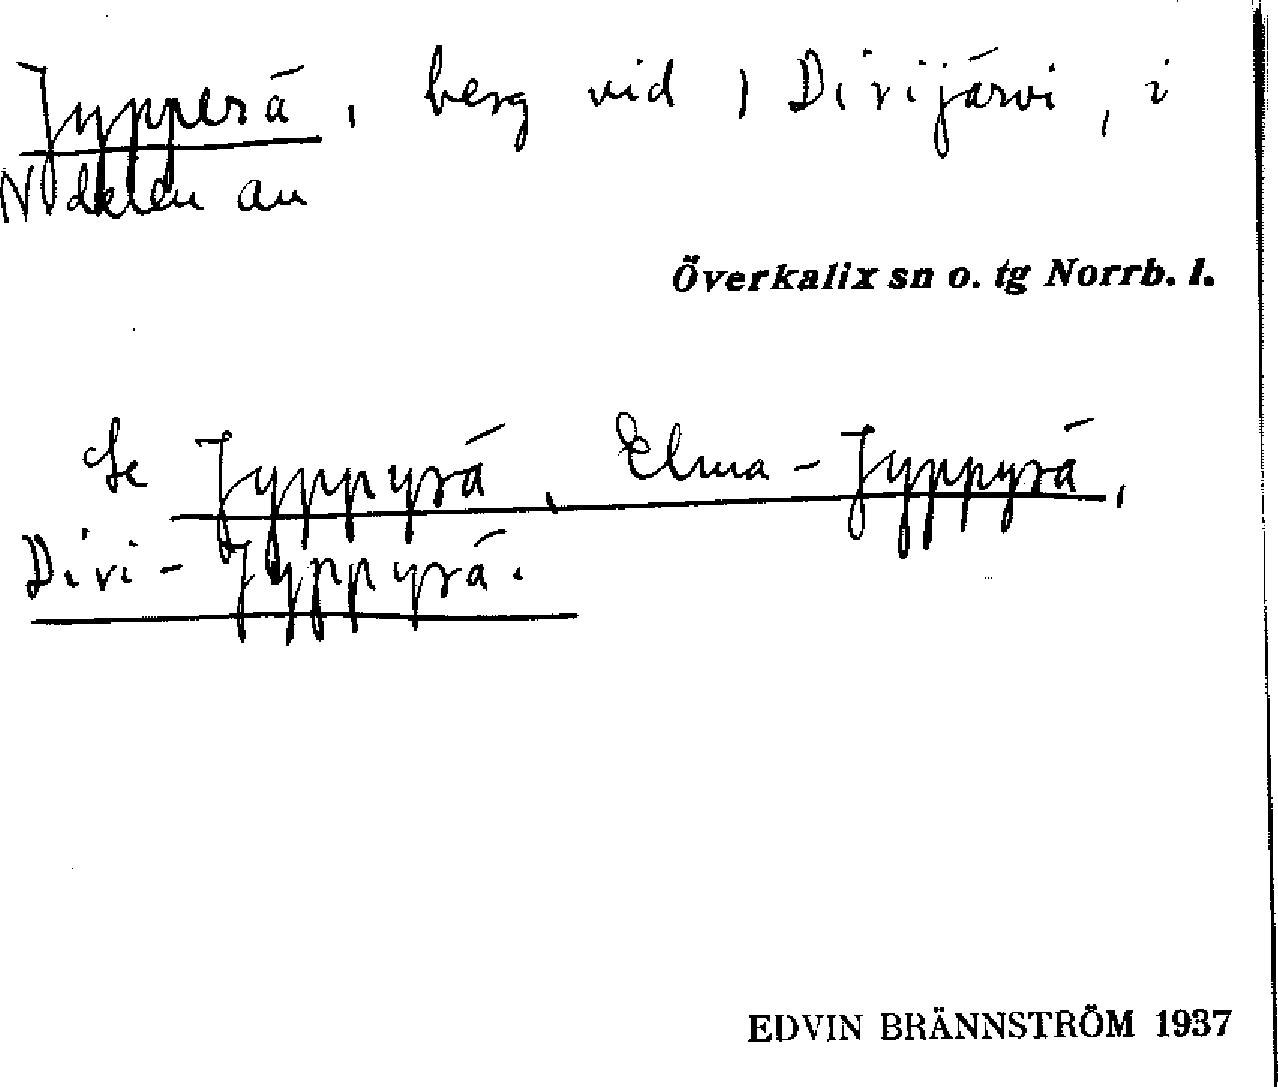 Jypperä, berg vid Divijärvi, i
N delen av
Överkalix sn o. tg Norrb. l.
Se Jyppyrä, Elma-Jyppyrä,
Divi-Jyppyrä.
EDVIN BRÄNNSTRÖM 1937